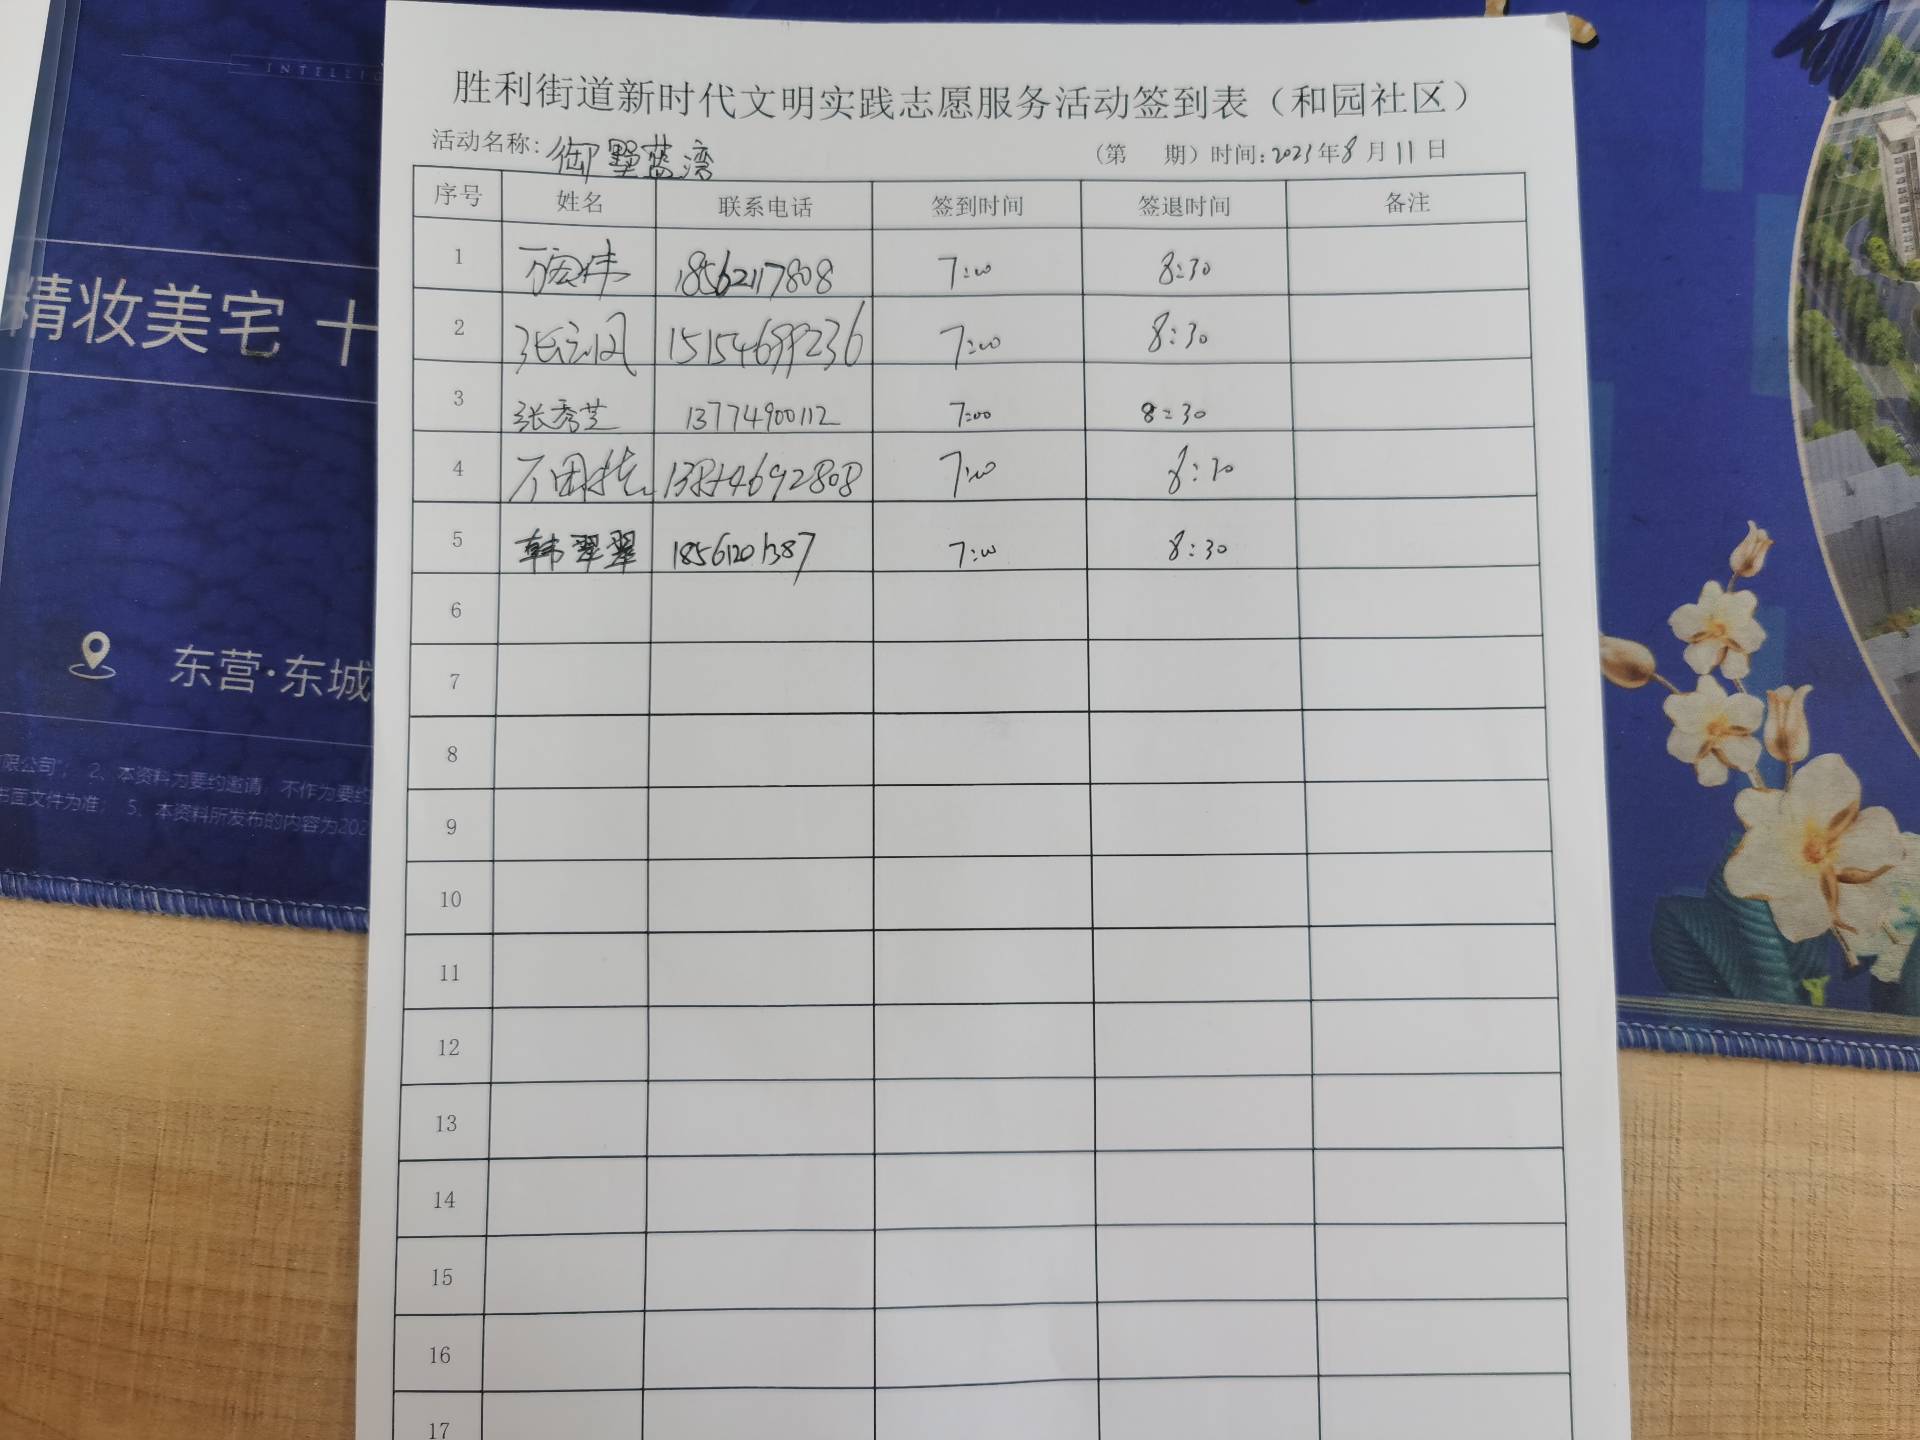 INTELLIG
精妆美宅 十
东营·东城
限公司"; 2、本资料为要约邀请,不作为要约
书面文件为准; 5、本资料所发布的内容为202
胜利街道新时代文明实践志愿服务活动签到表(和园社区)
活动名称:御墅蓝湾 (第 期)时间:2023年8月11日
序号 姓名 联系电话 签到时间 签退时间 备注
1 18562117808 7:00 8:30
2 15154699236 7:00 8:30
3 张秀芝 13774900112 7:00 8:30
4 13854692808 7:00 8:30
5 韩翠翠 18561201387 7:00 8:30
6
7
8
9
10
11
12
13
14
15
16
17